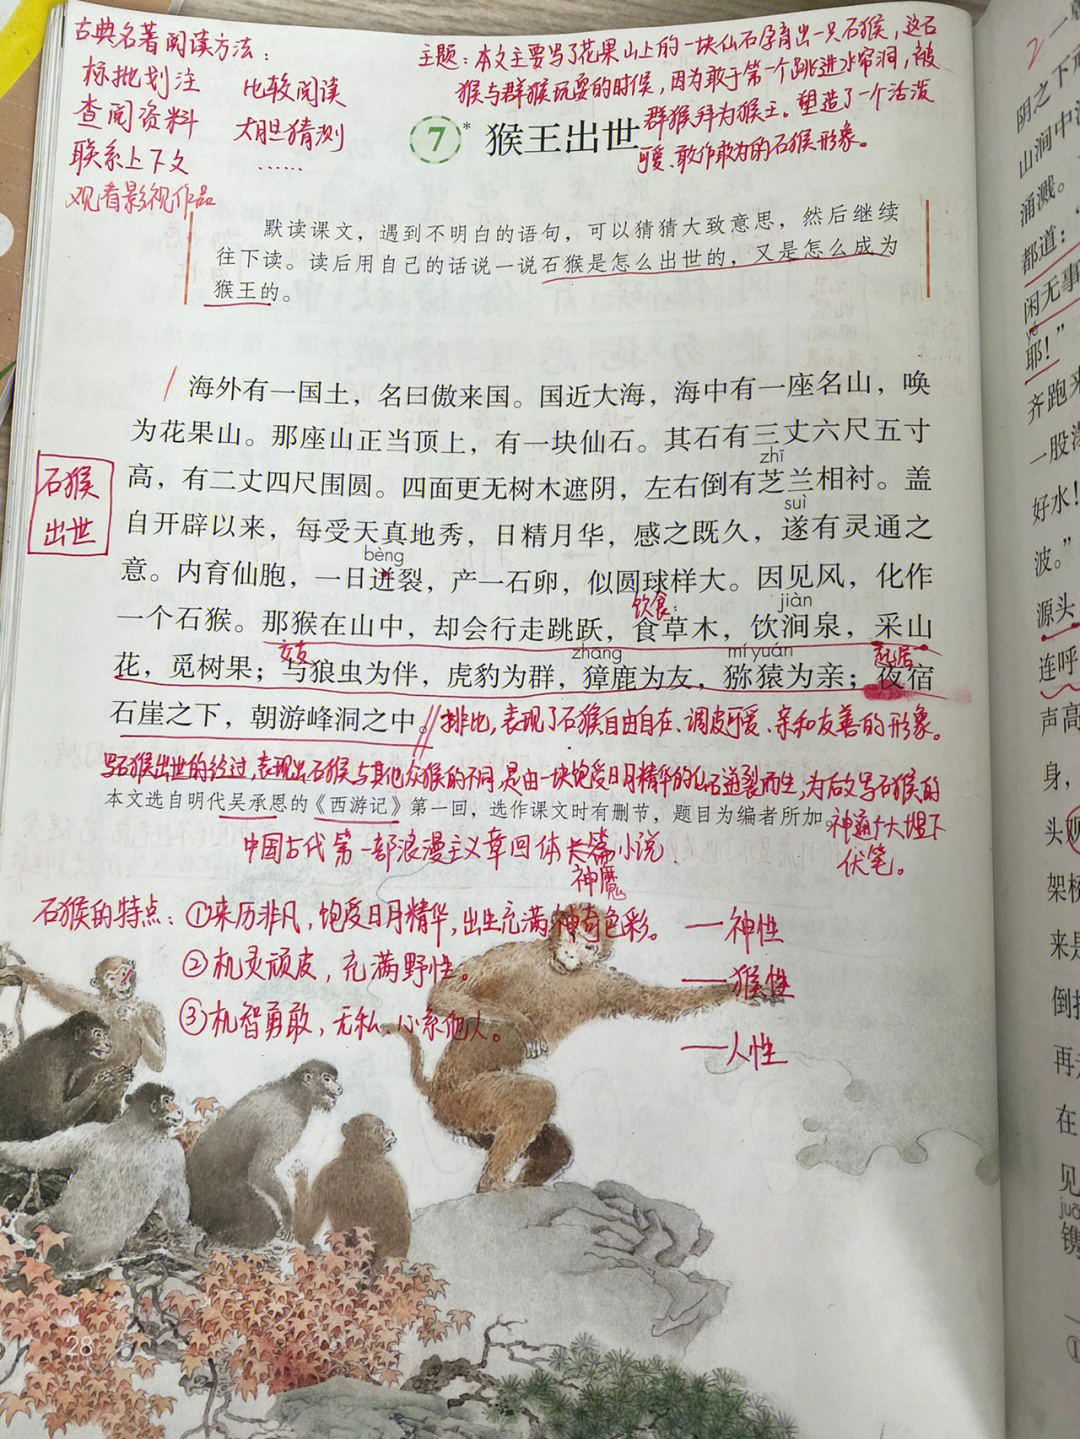 古典名著阅读方法：
标批划注 比较阅读
查阅资料 大胆猜测
联系上下文 ……
观看影视作品
主题：本文主要写了花果山上的一块仙石孕育出一只石猴，这石
猴与群猴玩耍的时候，因为敢于第一个跳进水帘洞，被
群猴拜为猴王。塑造了一个活泼
可爱、敢作敢为的石猴形象。
7* 猴王出世
默读课文，遇到不明白的语句，可以猜猜大致意思，然后继续
往下读。读后用自己的话说一说石猴是怎么出世的，又是怎么成为
猴王的。
1
海外有一国土，名曰傲来国。国近大海，海中有一座名山，唤
为花果山。那座山正当顶上，有一块仙石。其石有三丈六尺五寸
zhī
高，有二丈四尺围圆。四面更无树木遮阴，左右倒有芝兰相衬。盖
suì
自开辟以来，每受天真地秀，日精月华，感之既久，遂有灵通之
bèng
意。内育仙胞，一日迸裂，产一石卵，似圆球样大。因见风，化作
饮食： jiàn
一个石猴。那猴在山中，却会行走跳跃，食草木，饮涧泉，采山
交友 zhāng mí yuán 起居
花，觅树果；与狼虫为伴，虎豹为群，獐鹿为友，猕猿为亲；夜宿
石崖之下，朝游峰洞之中。
石猴
出世
排比，表现了石猴自由自在、调皮可爱、亲和友善的形象。
写石猴出世的经过，表现出石猴与其他众猴的不同，是由一块饱受日月精华的仙石迸裂而生，为后文写石猴的
神通广大埋下
伏笔。
本文选自明代吴承恩的《西游记》第一回，选作课文时有删节，题目为编者所加。
中国古代第一部浪漫主义章回体长篇小说
神魔
石猴的特点：①来历非凡，饱受日月精华，出生充满神奇色彩。 —神性
②机灵顽皮，充满野性。 —猴性
③机智勇敢，无私、心系他人。 —人性
28
2
一
阴之下
山涧中
涌溅。
都道：
闲无事
yé
耶！”
齐跑来
一股
好水！
波。”
源头
连呼
声高
身，
头
架桥
来是
倒挂
再
在
见
juō
镌
①